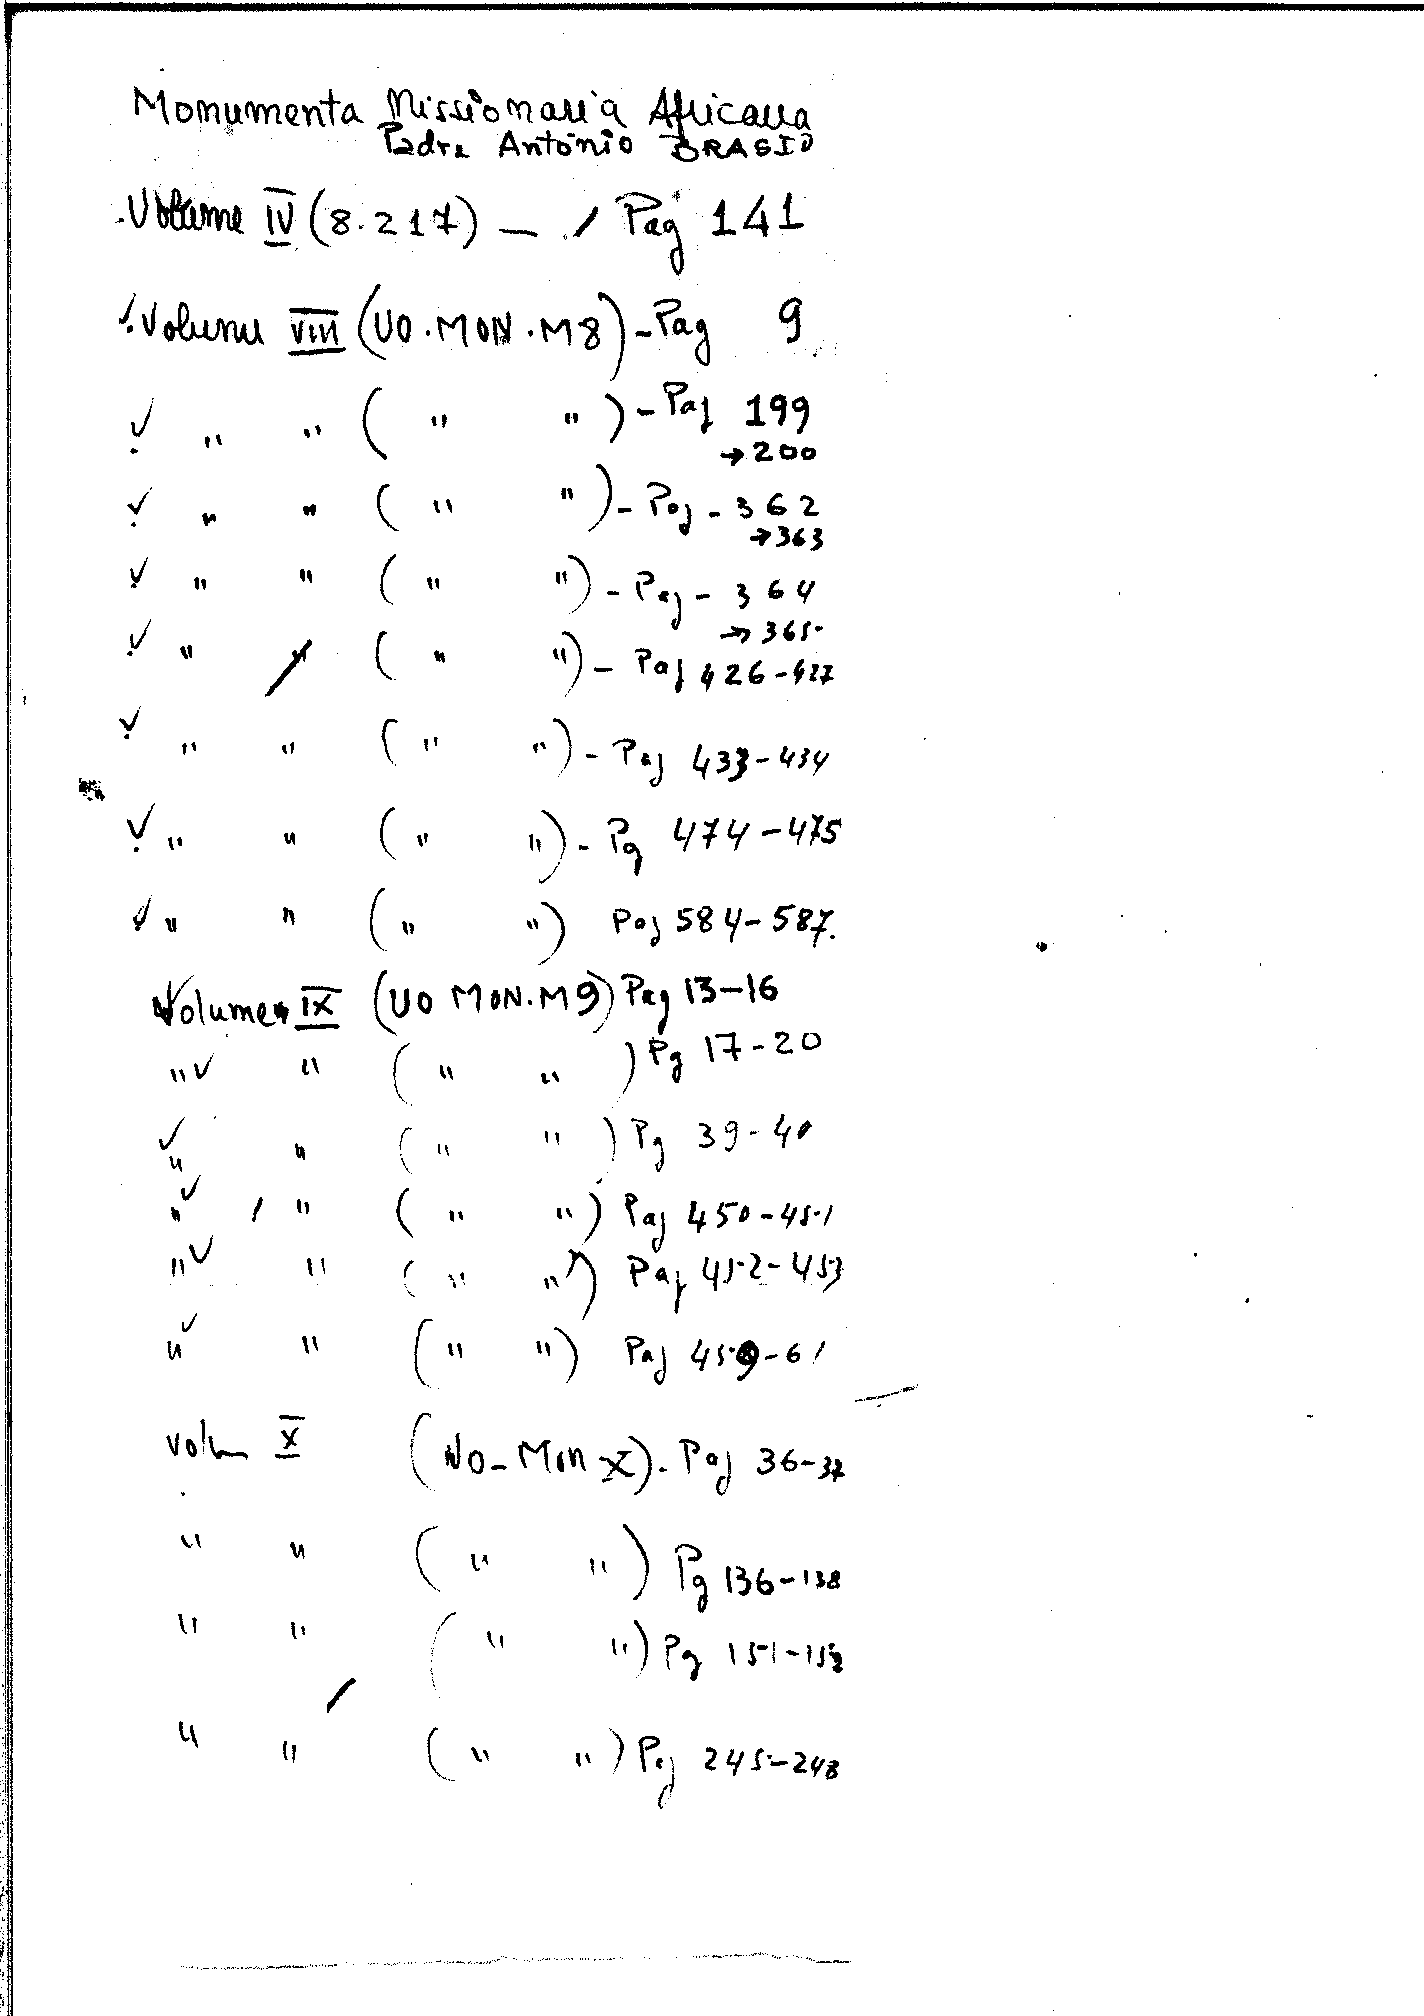 Monumenta Missionaria Africana
Padre António BRASIO
Volume IV (8.217) — / Pag 141
✓ Volume VIII (UO.MON.M8) - Pag 9
✓ " " ( " " ) - Pag 199
→ 200
✓ " " ( " " ) - Pag - 362
→ 363
✓ " " ( " " ) - Pag - 364
→ 365
✓ " " ( " " ) - Pag 426-427
✓ " " ( " " ) - Pag 433-434
✓ " " ( " " ) - Pg 474-475
✓ " " ( " " ) Pag 584-587.
Volume IX (UO MON.M9) Pag 13-16
" ✓ " ( " " ) Pg 17-20
✓ " " ( " " ) Pg 39-40
" ✓ / " ( " " ) Pag 450-451
" ✓ " ( " " ) Pag 452-453
" ✓ " ( " " ) Pag 459-61
Volum X (UO-MON X). Pag 36-37
" " ( " " ) Pg 136-138
" " ( " " ) Pg 151-152
" " ( " " ) Pag 245-248